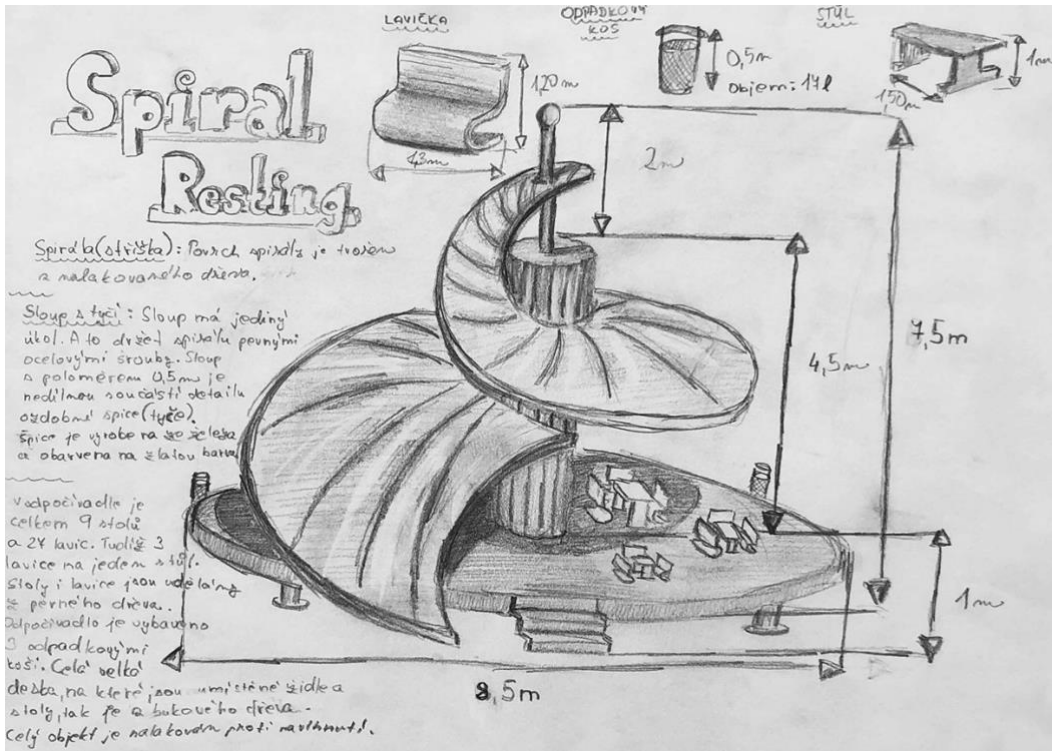 Spiral
Resting
LAVIČKA
1,20m
1,3m
ODPADKOVÝ
KOŠ
0,5m
Objem: 17l
STŮL
1m
1,50m
2m
4,5m
7,5m
1m
8,5m
Spirála (stříška): Povrch spirály je tvořen
z nalakovaného dřeva.
Sloup s tyčí: Sloup má jediný
úkol. A to držet spirálu pevnými
ocelovými šrouby. Sloup
s poloměrem 0,5m je
nedílnou součástí detailu
ozdobné špice (tyče).
Špice je vyrobena ze železa
a obarvena na zlatou barvu
V odpočívadle je
celkem 9 stolů
a 27 lavic. Tudíž 3
lavice na jeden stůl.
Stoly i lavice jsou udělány
z pevného dřeva.
Odpočívadlo je vybaveno
3 odpadkovými
koši. Celá velká
deska, na které jsou umístěné židle a
stoly, tak je z bukového dřeva.
Celý objekt je nalakován proti navlhnutí.